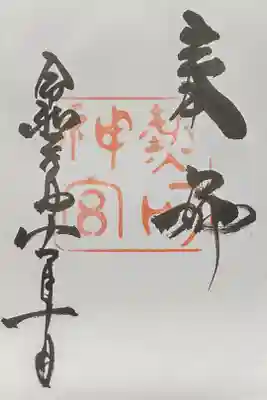 奉拝
熱田
神宮
令和六年十一月十一日